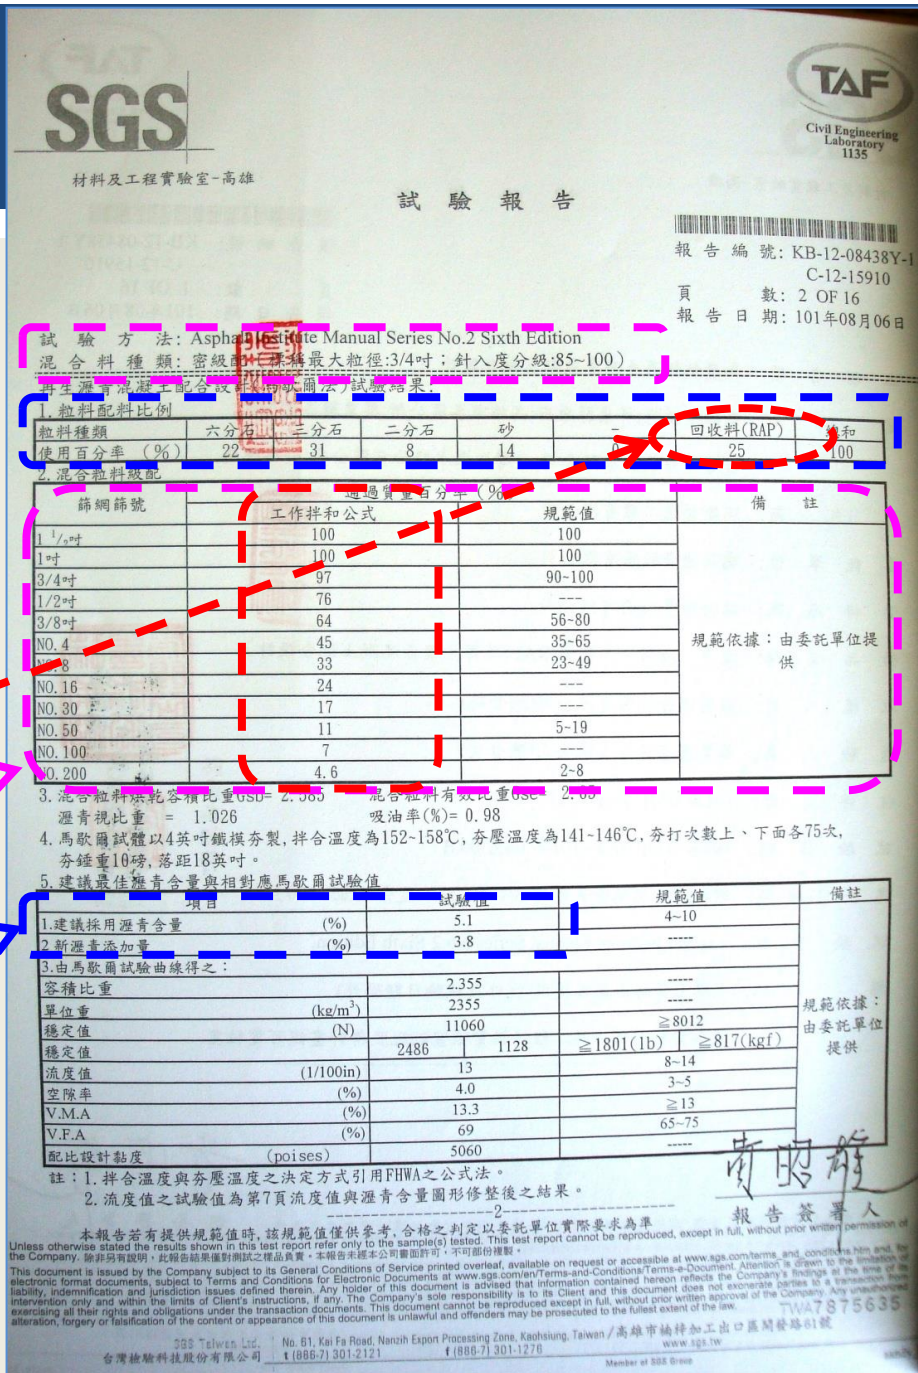 SGS
TAF
Civil Engineering
Laboratory
1135
材料及工程實驗室-高雄
試 驗 報 告
報 告 編 號: KB-12-08438Y-1
C-12-15910
頁 數: 2 OF 16
報 告 日 期: 101年08月06日
試 驗 方 法: Asphalt Institute Manual Series No.2 Sixth Edition
混 合 料 種 類: 密級配 標稱最大粒徑:3/4吋；針入度分級:85~100)
再生瀝青混凝土配合設計(馬歇爾法)試驗結果:
1.粒料配料比例
粒料種類 六分石 三分石 二分石 砂 - 回收料(RAP) 總和
使用百分率 (%) 22 31 8 14 25 100
2.混合粒料級配
篩網篩號 通過質量百分率(%) 備 註
工作拌和公式 規範值
1 1/2吋 100 100
1吋 100 100
3/4吋 97 90~100
1/2吋 76 ---
3/8吋 64 56~80
NO.4 45 35~65
NO.8 33 23~49
NO.16 24 ---
NO.30 17 ---
NO.50 11 5~19
NO.100 7 ---
NO.200 4.6 2~8
規範依據：由委託單位提供
3.混合粒料烘乾容積比重Gsb= 2.585 混合粒料有效比重Gse= 2.65
瀝青視比重 = 1.026 吸油率(%)= 0.98
4.馬歇爾試體以4英吋鐵模夯製,拌合溫度為152~158℃,夯壓溫度為141~146℃,夯打次數上、下面各75次,
夯錘重10磅,落距18英吋。
5.建議最佳瀝青含量與相對應馬歇爾試驗值
項目 試驗值 規範值 備註
1.建議採用瀝青含量 (%) 5.1 4~10
2.新瀝青添加量 (%) 3.8 -----
3.由馬歇爾試驗曲線得之：
容積比重 2.355 -----
單位重 (kg/m³) 2355 -----
穩定值 (N) 11060 ≧8012
穩定值 2486 1128 ≧1801(lb) ≧817(kgf)
流度值 (1/100in) 13 8~14
空隙率 (%) 4.0 3~5
V.M.A (%) 13.3 ≧13
V.F.A (%) 69 65~75
配比設計黏度 (poises) 5060 -----
規範依據：由委託單位提供
註：1.拌合溫度與夯壓溫度之決定方式引用FHWA之公式法。
2.流度值之試驗值為第7頁流度值與瀝青含量圖形修整後之結果。
-2-
報 告 簽 署 人
本報告若有提供規範值時,該規範值僅供參考,合格之判定以委託單位實際要求為準
Unless otherwise stated the results shown in this test report refer only to the sample(s) tested. This test report cannot be reproduced, except in full, without prior written permission of
the Company. 除非另有說明，此報告結果僅對測試之樣品負責。本報告未經本公司書面許可，不可部份複製。
This document is issued by the Company subject to its General Conditions of Service printed overleaf, available on request or accessible at www.sgs.com/terms_and_conditions.htm and, for
electronic format documents, subject to Terms and Conditions for Electronic Documents at www.sgs.com/en/Terms-and-Conditions/Terms-e-Document. Attention is drawn to the limitation of
liability, indemnification and jurisdiction issues defined therein. Any holder of this document is advised that information contained hereon reflects the Company's findings at the time of its
intervention only and within the limits of Client's instructions, if any. The Company's sole responsibility is to its Client and this document does not exonerate parties to a transaction from
exercising all their rights and obligations under the transaction documents. This document cannot be reproduced except in full, without prior written approval of the Company. Any unauthorized
alteration, forgery or falsification of the content or appearance of this document is unlawful and offenders may be prosecuted to the fullest extent of the law.
TWA7875635
SGS Taiwan Ltd. No. 61, Kai Fa Road, Nanzih Export Processing Zone, Kaohsiung, Taiwan /高雄市楠梓加工出口區開發路61號
台灣檢驗科技股份有限公司 t (886-7) 301-2121 f (886-7) 301-1276 www.sgs.tw
Member of SGS Group